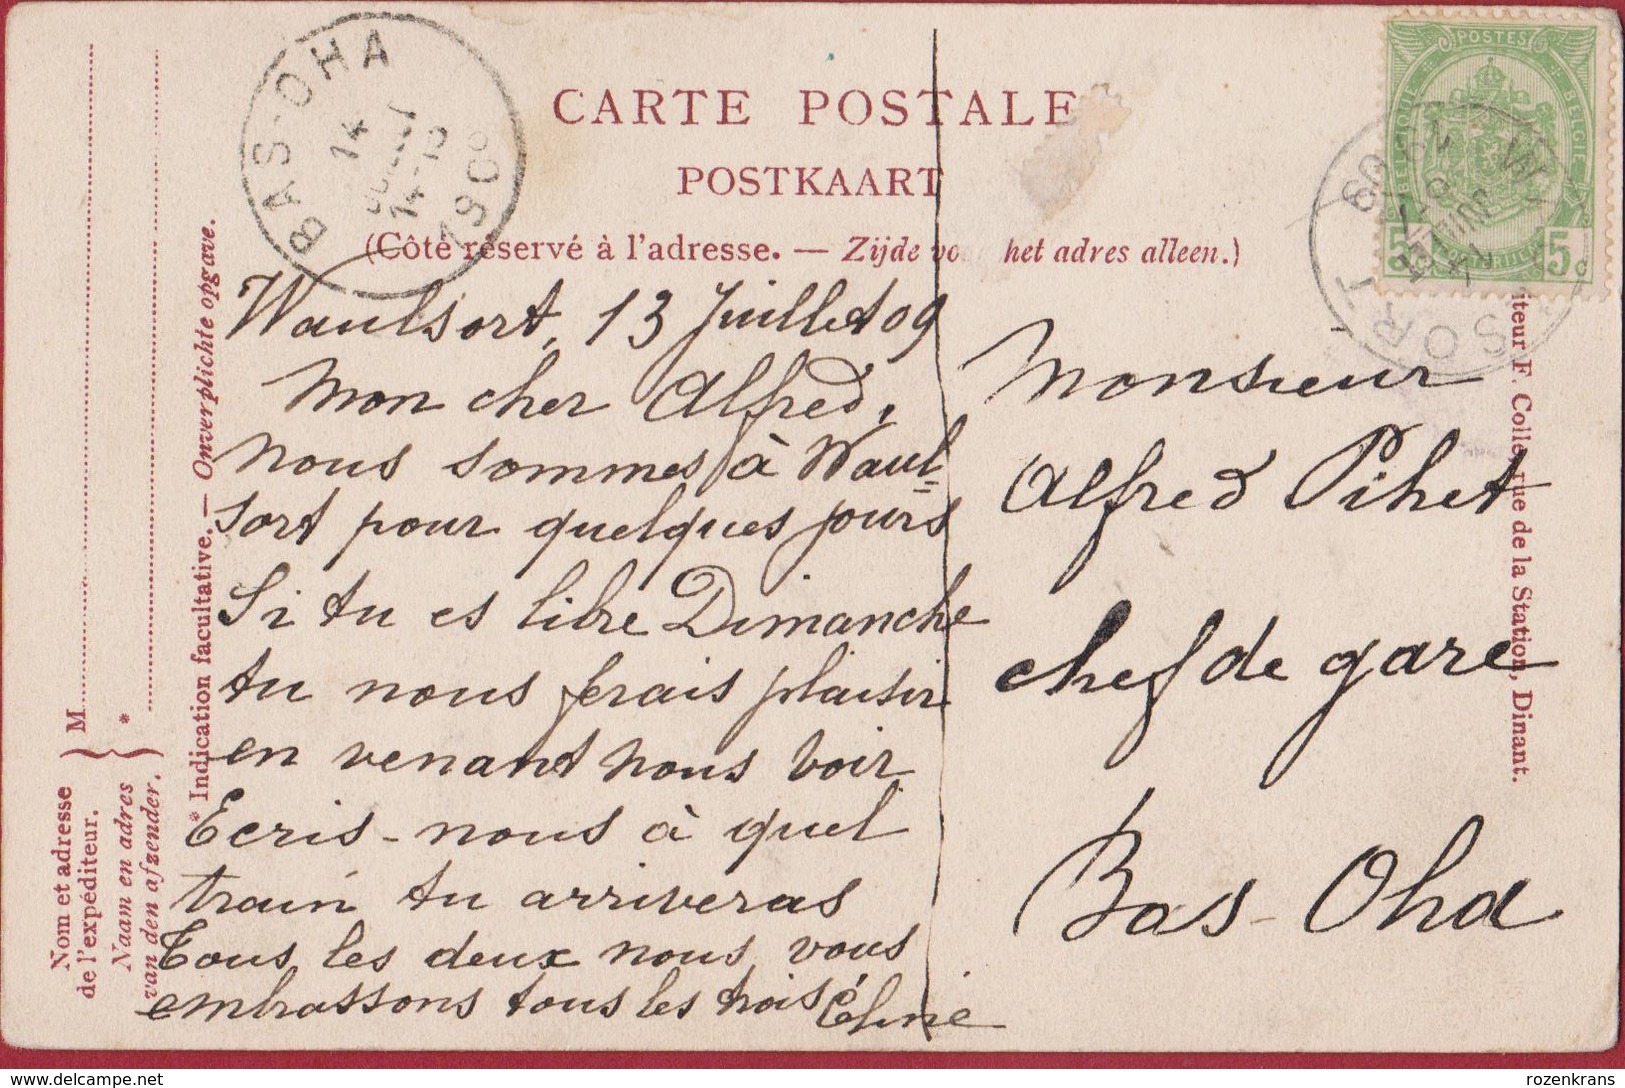 CARTE POSTALE
POSTKAART
(Côté réservé à l'adresse. — Zijde het adres alleen.)
BAS-OHA
14
14-15
1909
POSTES
BELGIQUE
BELGIE
5 5c
SORT
1909
Waulsort, 13 Juillet 09
Mon cher Alfred,
nous sommes à Waul=
sort pour quelques jours
Si tu es libre Dimanche
tu nous ferais plaisir
en venant nous voir
Ecris-nous à quel
train tu arriveras
Tous les deux nous vous
embrassons tous les trois Céline
Monsieur
Alfred Pihet
chef de gare
Bas-Oha
* Indication facultative. — Onverplichte opgave.
M
*
Nom et adresse
de l'expéditeur.
Naam en adres
van den afzender.
iteur F. Colle, rue de la Station, Dinant.
delcampe.net
rozenkrans